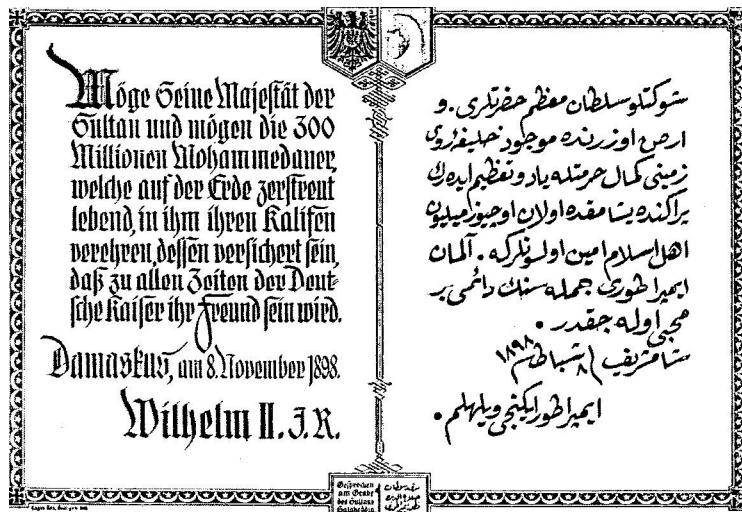 Möge Seine Majestät der
Sultan und mögen die 300
Millionen Mohammedaner,
welche auf der Erde zerstreut
lebend, in ihm ihren Kalifen
verehren, dessen versichert sein,
daß zu allen Zeiten der Deut-
sche Kaiser ihr Freund sein wird.
Damaskus, am 8. November 1898.
Wilhelm II. J. R.
شوكتلو سلطان معظم حضرتلرى . و
ارض اوزرنده موجود خليفۀ روى
زمينى كمال حرمتله ياد و تعظيم ايده رك
پراكنده يشامقده اولان اوچيوز ميليون
اهل اسلام امين اولسونلركه . آلمان
ايمپراطورى جمله سنك دائمى بر
محبى اوله جقدر .
شامشريف ٨ شباط ١٨٩٨
ايمپراطور ايكنجى ويلهلم .
Gesprochen
am Grabe
des Sultans
Saladin